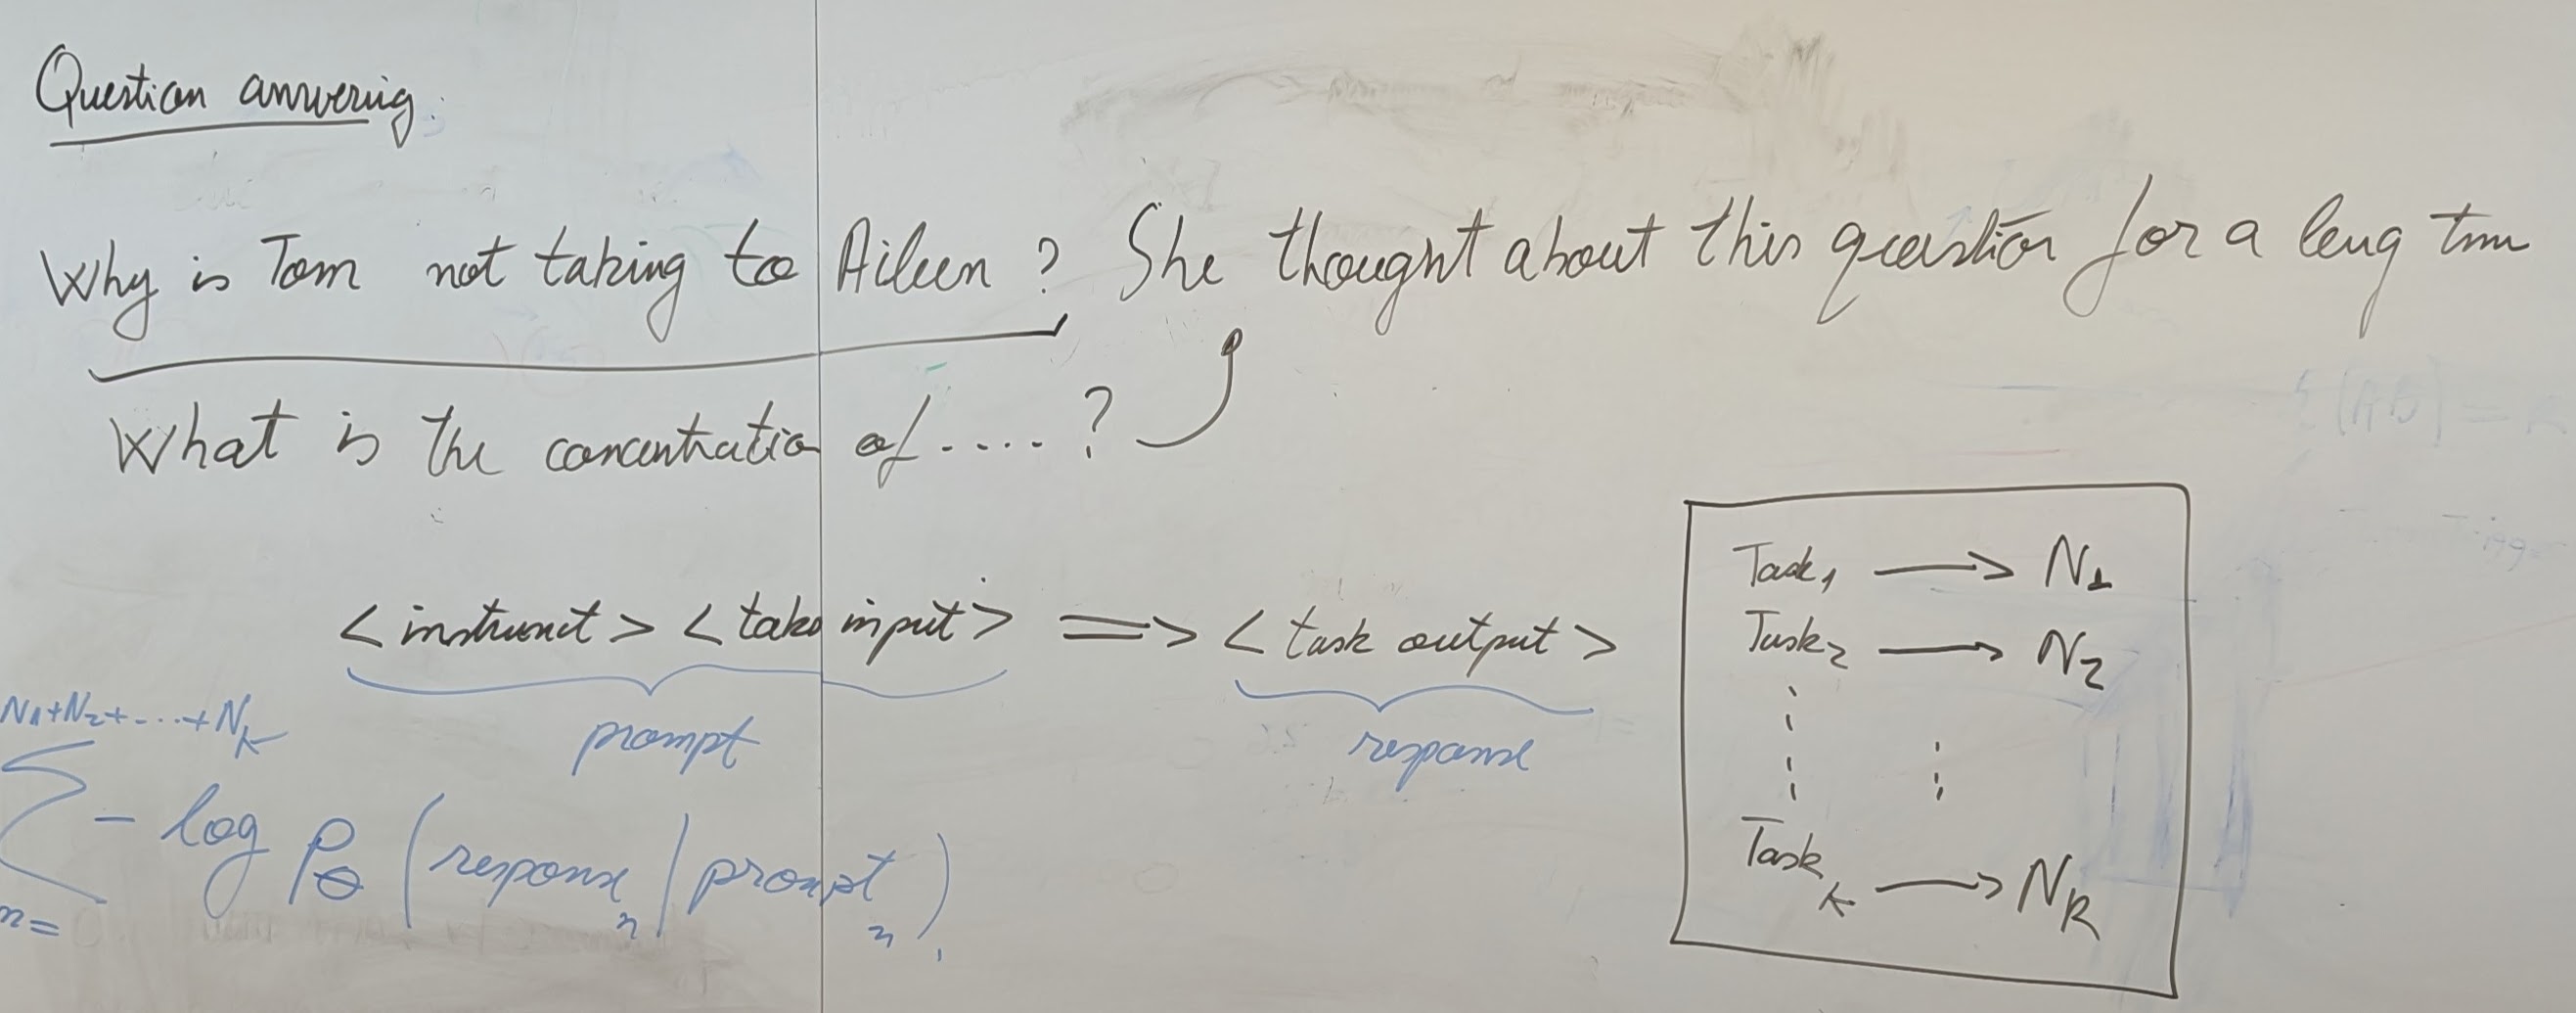 Question answering:
Why is Tom not taking to Aileen ? She thought about this question for a long tm
What is the concentration of .... ?
<instruct> <task input> => <task output>
prompt
response
N1+N2+....+Nk
∑ - log Pθ (response n | prompt n)
n=
Task1 → N1
Task2 → N2
Task k → Nk